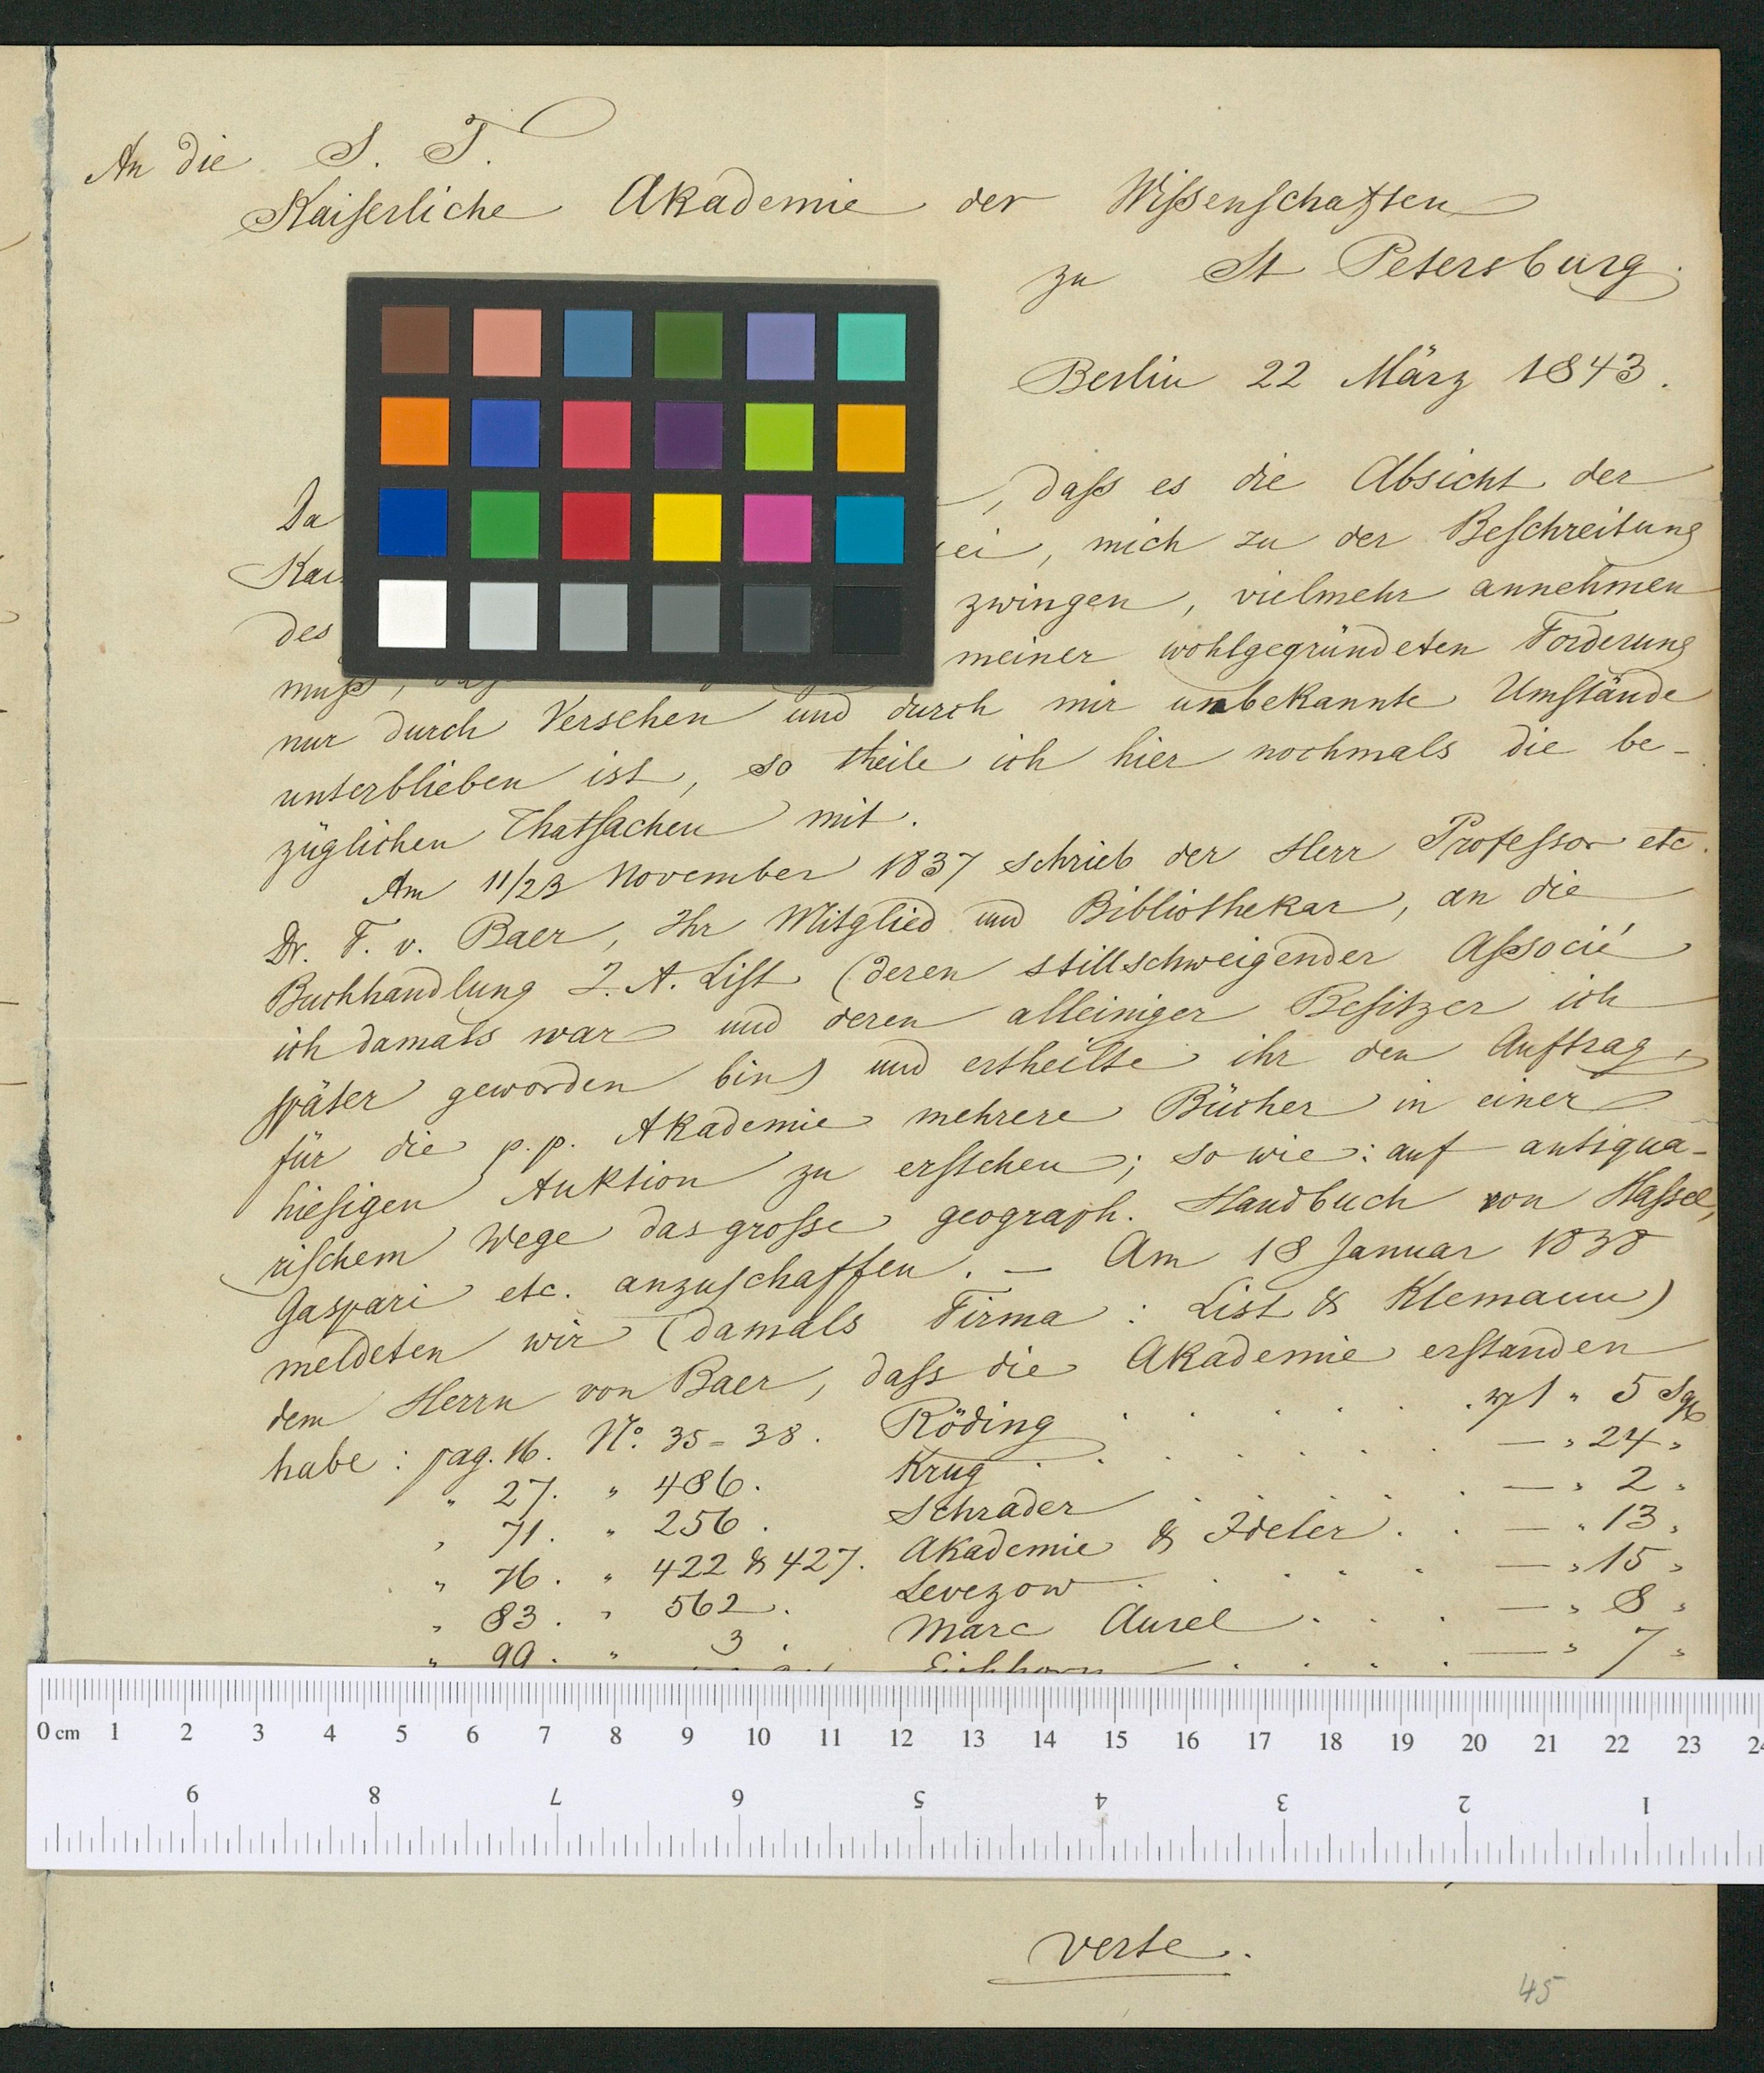 An die S. T.
Kaiserliche Akademie der Wissenschaften
zu St Petersburg.
Berlin 22 März 1843.
Da , dass es die Absicht der
Kai ei, mich zu der Beschreitung
des zwingen, vielmehr annehmen
muss, meiner wohlgegründeten Forderung
nur durch Versehen und durch mir unbekannte Umstände
unterblieben ist, so theile ich hier nochmals die be-
züglichen Thatsachen mit.
Am 11/23 November 1837 schrieb der Herr Professor etc.
Dr. F. v. Baer, Ihr Mitglied und Bibliothekar, an die
Buchhandlung J. A. List (deren stillschweigender Associé
ich damals war und deren alleiniger Besitzer ich
später geworden bin) und ertheilte ihr den Auftrag,
für die p.p. Akademie mehrere Bücher in einer
hiesigen Auktion zu erstehen; so wie: auf antiqua-
rischem Wege das grosse geograph. Handbuch von Hassel,
Gaspari etc. anzuschaffen. — Am 18 Januar 1838
meldeten wir (damals Firma: List & Klemann)
dem Herrn von Baer, dass die Akademie erstanden
habe: pag. 16. No. 35=38. Röding . . . . . 1 " 5 Sgr
" 27. " 486. Krug . . . . . — " 24 "
" 71. " 256. Schrader . . . . — " 2 "
" 76. " 422 & 427. Akademie & Ideler . . — " 13 "
" 83. " 562. Levezow . . . . — " 15 "
" 99. " 3. Marc Aurel . . . — " 8 "
Eichhorn . . . . — " 7 "
0 cm 1 2 3 4 5 6 7 8 9 10 11 12 13 14 15 16 17 18 19 20 21 22 23 24
9 8 7 6 5 4 3 2 1
verte.
45